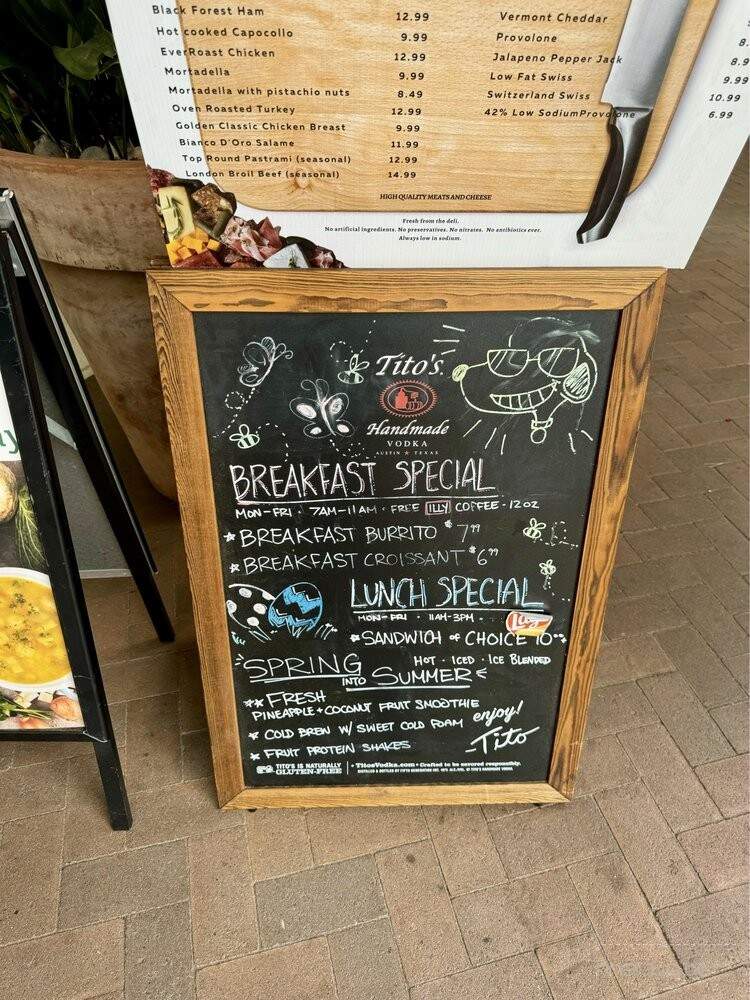 Black Forest Ham 12.99
Hot cooked Capocollo 9.99
EverRoast Chicken 12.99
Mortadella 9.99
Mortadella with pistachio nuts 8.49
Oven Roasted Turkey 12.99
Golden Classic Chicken Breast 9.99
Bianco D'Oro Salame 11.99
Top Round Pastrami (seasonal) 12.99
London Broil Beef (seasonal) 14.99
Vermont Cheddar
Provolone 8.
Jalapeno Pepper Jack 8.9
Low Fat Swiss 9.99
Switzerland Swiss 10.99
42% Low SodiumProvolone 6.99
HIGH QUALITY MEATS AND CHEESE
Fresh from the deli.
No artificial ingredients. No preservatives. No nitrates. No antibiotics ever.
Always low in sodium.
Tito's
Handmade
VODKA
AUSTIN ★ TEXAS
BREAKFAST SPECIAL
MON-FRI · 7AM-11AM · FREE ILLY COFFEE · 12OZ
★ BREAKFAST BURRITO $7.99
★ BREAKFAST CROISSANT $6.99
LUNCH SPECIAL
MON-FRI · 11AM-3PM · Lay's
★SANDWICH OF CHOICE 10
SPRING INTO SUMMER
HOT · ICED · ICE BLENDED
★★ FRESH
PINEAPPLE + COCONUT FRUIT SMOOTHIE
★ COLD BREW W/ SWEET COLD FOAM
★ FRUIT PROTEIN SHAKES
enjoy!
-Tito
TITO'S IS NATURALLY
GLUTEN-FREE
• TitosVodka.com • Crafted to be savored responsibly.
DISTILLED & BOTTLED BY FIFTH GENERATION INC. 40% ALC./VOL. © TITO'S HANDMADE VODKA.
y